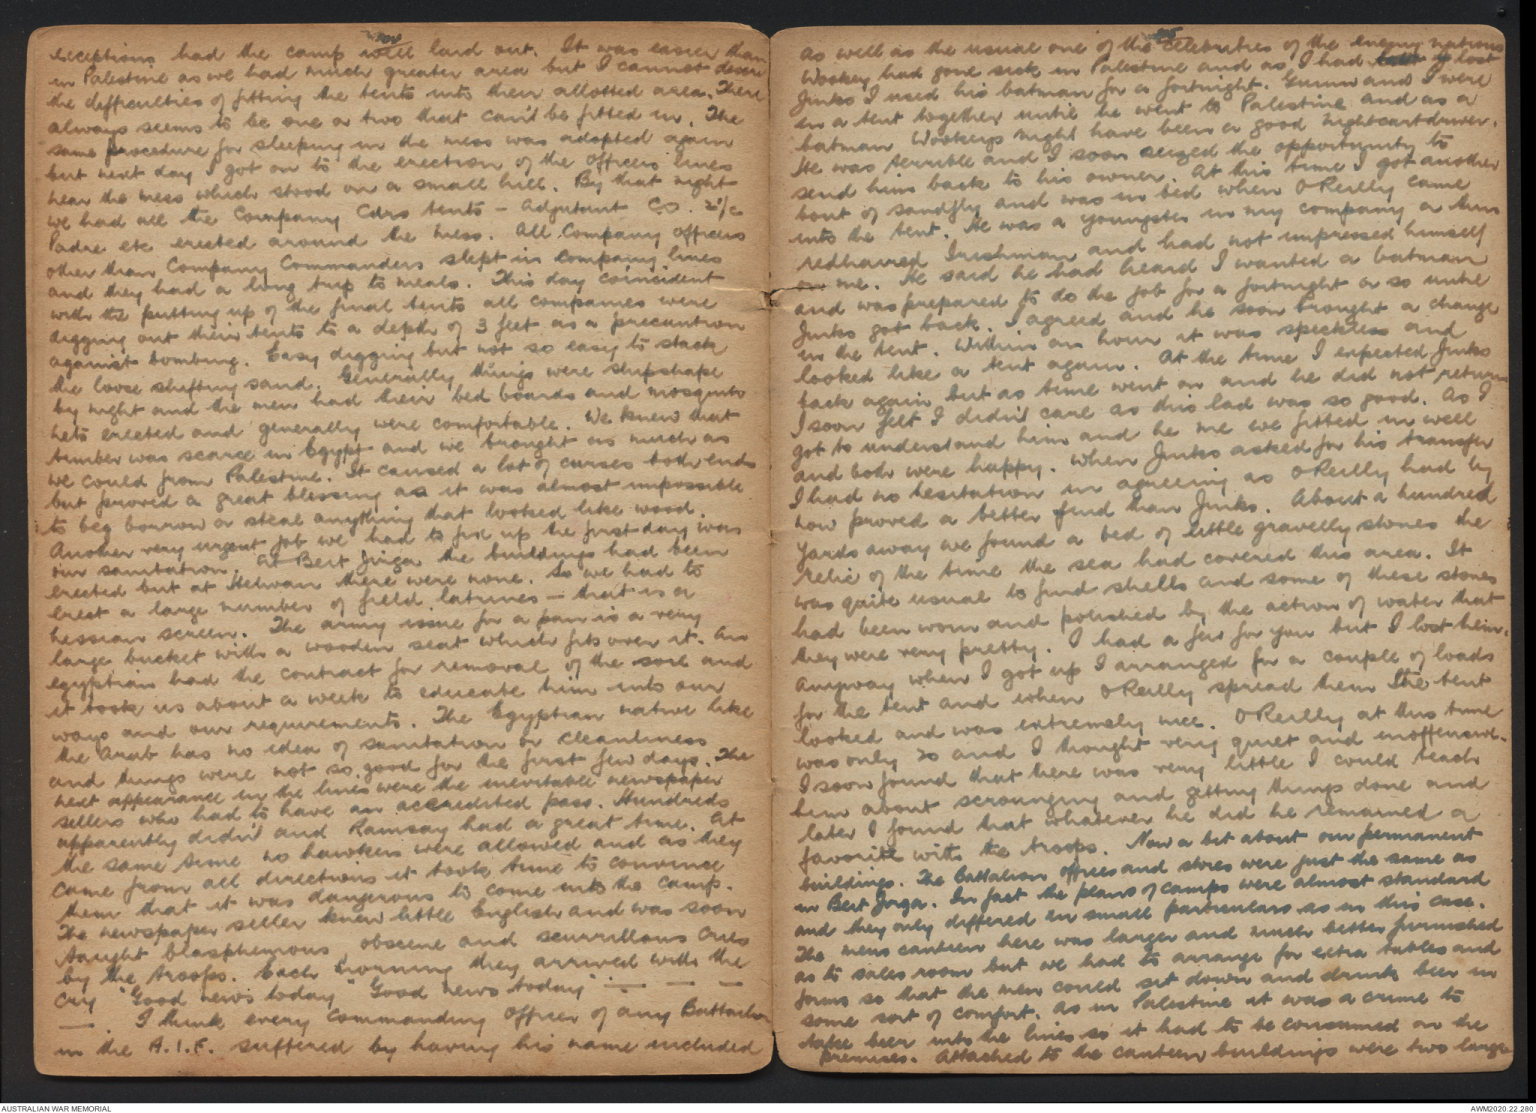 exceptions had the camp well laid out. It was easier than
in Palestine as we had much greater area but I cannot
the difficulties of fitting the tents into their allotted area. There
always seems to be one or two that can't be fitted in. The
same procedure for sleeping in the mess was adopted again
but next day I got on to the erection of the officers lines
near the mess which stood on a small hill. By that night
we had all the Company Cdrs tents – Adjutant CO. 2i/c
Padre etc erected around the mess. All Company officers
other than Company Commanders slept in Company lines
and they had a long trip to meals. This day coincident
with the putting up of the final tents all companies were
digging out their tents to a depth of 3 feet as a precaution
against bombing. Easy digging but not so easy to stack
the loose shifting sand. Generally things were shipshape
by night and the men had their bed boards and mosquito
nets erected and generally were comfortable. We knew that
timber was scarce in Egypt and we brought as much as
we could from Palestine. It caused a lot of curses both ends
but proved a great blessing as it was almost impossible
to beg borrow or steal anything that looked like wood.
Another very urgent job we had to fix up the first day was
our sanitation. At Beit Jirga the buildings had been
erected but at Helwan there were none. So we had to
erect a large number of field latrines – that is a
hessian screen. The army issue for a pan is a very
large bucket with a wooden seat which fits over it. An
egyptian had the contract for removal of the soil and
it took us about a week to educate him into our
ways and our requirements. The Egyptian native like
the Arab has no idea of sanitation or cleanliness
and things were not so good for the first few days. The
next appearance in the lines were the inevitable newspaper
sellers who had to have an accredited pass. Hundreds
apparently didn't and Ramsay had a great time. At
the same time no hawkers were allowed and as they
came from all directions it took time to convince
them that it was dangerous to come into the camp.
The newspaper seller knew little English and was soon
taught blasphemous obscene and scurrillous cries
by the troops. Each morning they arrived with the
cry "Good news today" Good news today" — — —
— . I think every Commanding Officer of any Battalion
in the A.I.F. suffered by having his name included
as well as the usual one of the celebrities of the enemy nations
Wookey had gone sick in Palestine and as I had lost
Jinks I used his batman for a fortnight. Gunn and I were
in a tent together until he went to Palestine and as a
batman Wookeys might have been a good nightcart driver.
He was terrible and I soon seized the opportunity to
send him back to his owner. At this time I got another
bout of sandfly and was in bed when O'Reilly came
into the tent. He was a youngster in my company a thin
redhaired Irishman and had not impressed himself
on me. He said he had heard I wanted a batman
and was prepared to do the job for a fortnight or so until
Jinks got back. I agreed and he soon brought a change
in the tent. Within an hour it was speckless and
looked like a tent again. At the time I expected Jinks
back again but as time went on and he did not return
I soon felt I didn't care as this lad was so good. As I
got to understand him and he me we fitted in well
and both were happy. When Jinks asked for his transfer
I had no hesitation in agreeing as O'Reilly had by
now proved a better find than Jinks. About a hundred
yards away we found a bed of little gravelly stones the
relic of the time the sea had covered this area. It
was quite usual to find shells and some of these stones
had been worn and polished by the action of water that
they were very pretty. I had a few for you but I lost them.
Anyway when I got up I arranged for a couple of loads
for the tent and when O'Reilly spread them the tent
looked and was extremely nice. O'Reilly at this time
was only 20 and I thought very quiet and inoffensive.
I soon found that there was very little I could teach
him about scrounging and getting things done and
later I found that whatever he did he remained a
favorite with the troops. Now a bit about our permanent
buildings. The Battalion offices and stores were just the same as
in Beit Jirga. In fact the plans of camps were almost standard
and they only differed in small particulars as in this case.
The mens canteen here was larger and much better furnished
as to sales room but we had to arrange for extra tables and
forms so that the men could sit down and drink beer in
some sort of comfort. As in Palestine it was a crime to
take beer into the lines so it had to be consumed on the
premises. Attached to the canteen buildings were two large
AUSTRALIAN WAR MEMORIAL
AWM2020.22.280